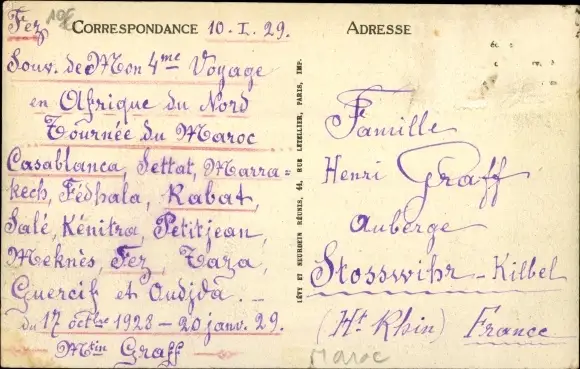 Fez 10f
CORRESPONDANCE 10. I. 29.
Souv. de Mon 4me Voyage
en Afrique du Nord
Tournée du Maroc
Casablanca, Settat, Marra=
kech, Fédhala, Rabat,
Salé, Kénitra, Petitjean,
Meknès, Fez, Taza,
Guercif et Oudjda. -
du 17 octbre 1928 - 20 janv. 29.
Mtin Graff
LÉVY ET NEURDEIN RÉUNIS, 44, RUE LETELLIER, PARIS, IMP.
ADRESSE
Famille
Henri Graff
Auberge
Stosswihr - Kilbel
(Ht Rhin) France
Maroc